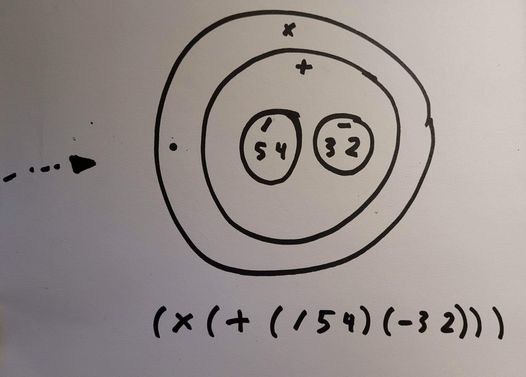 x
+
/ -
54 32
(x(+(/54)(-32)))